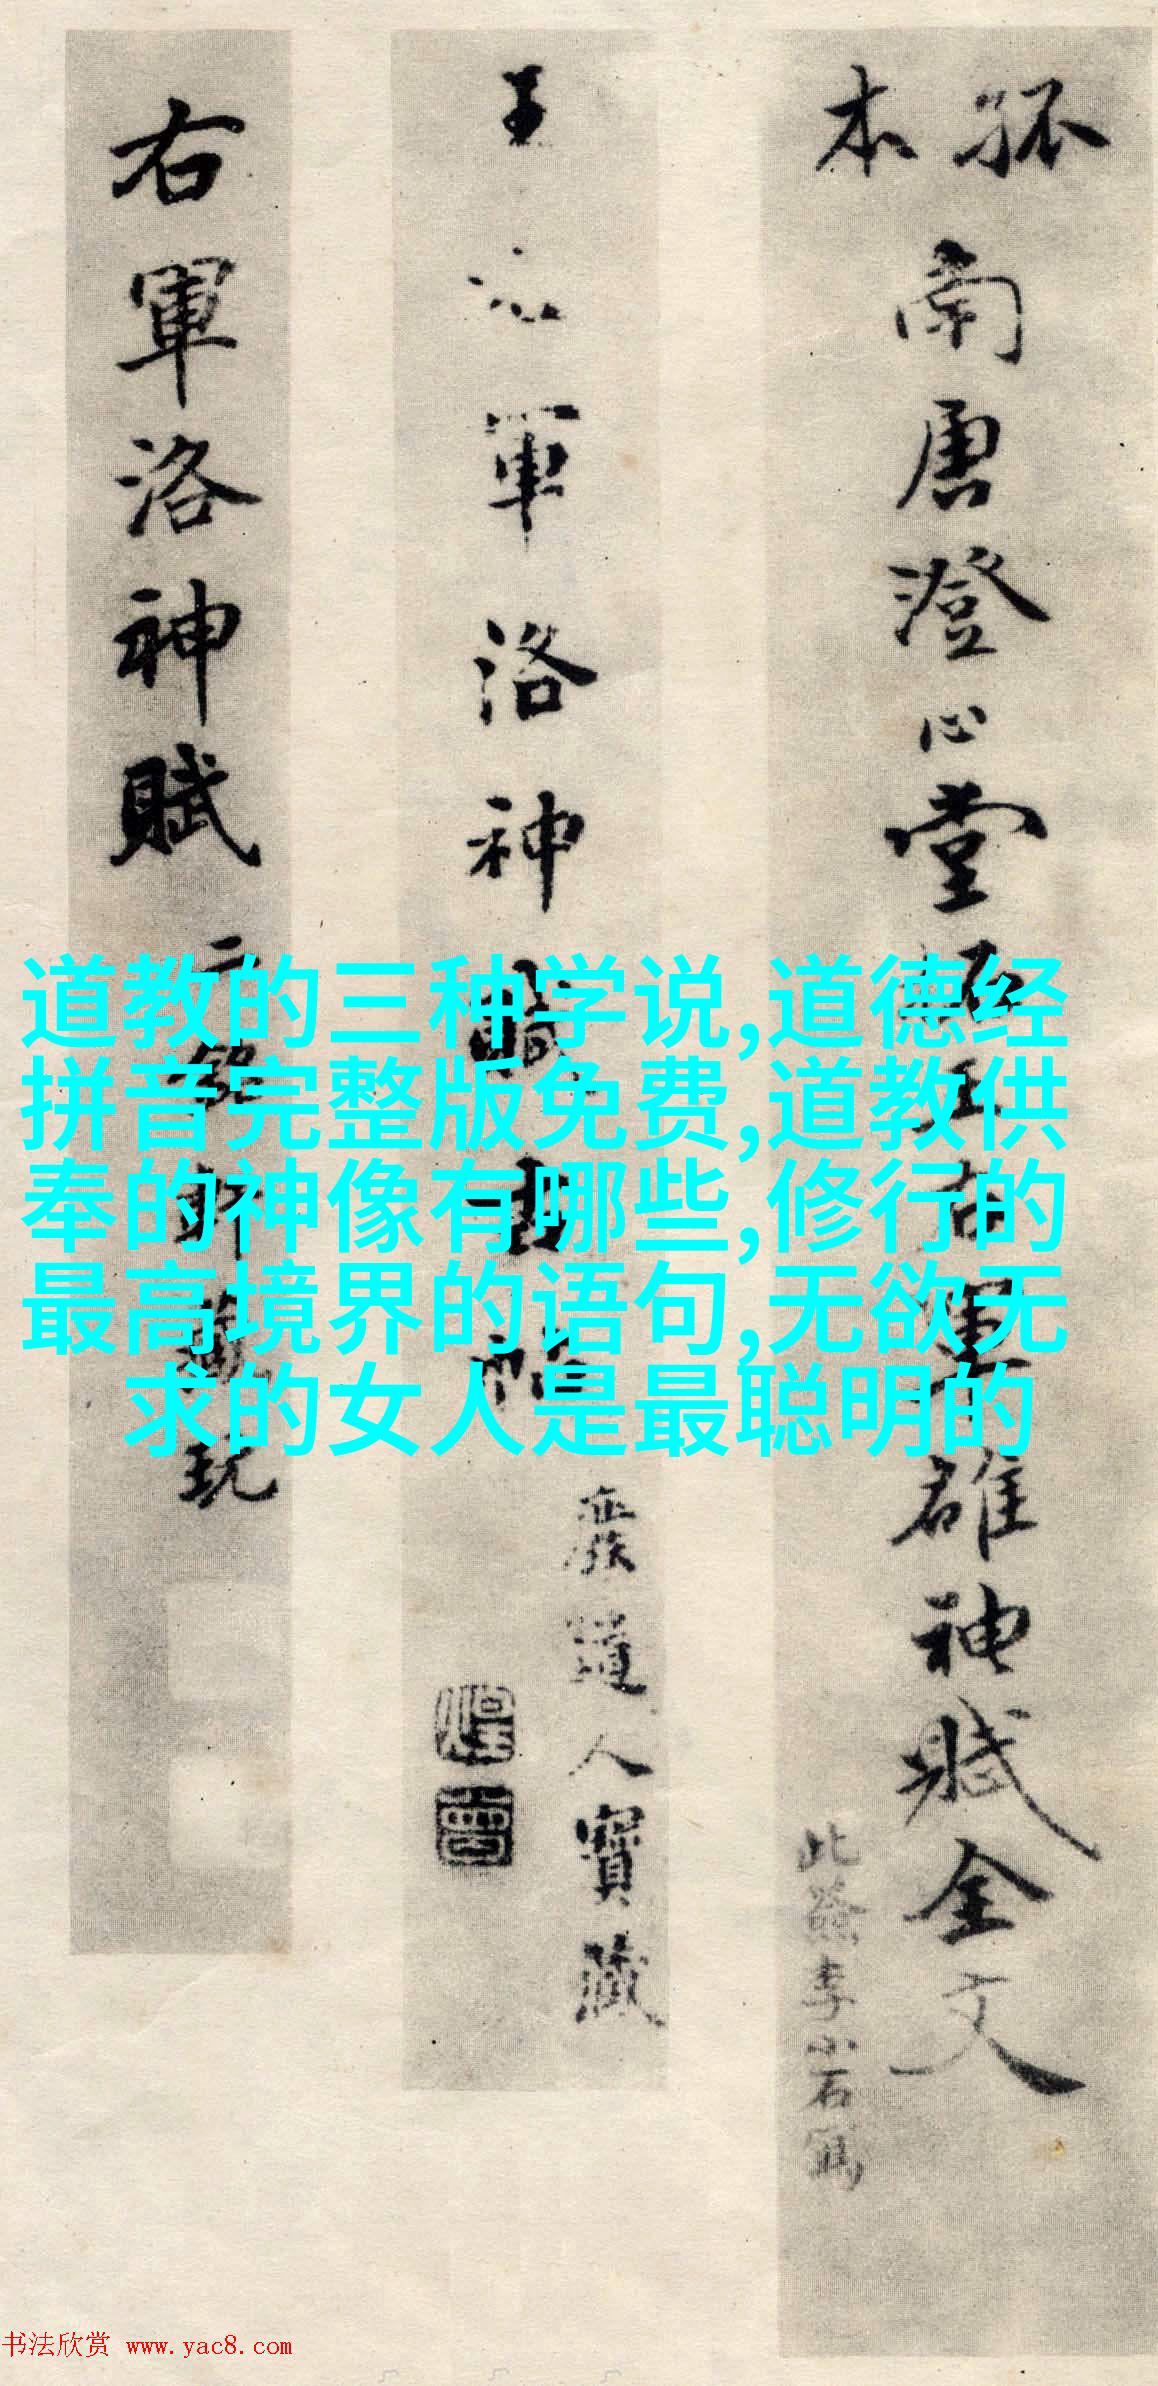 孤本
南唐澄心堂拓王右軍雒神賦全文
此籤李小石寫
王右軍洛神賦
道人寶藏
右軍洛神賦
道教的三种学说,道德经
拼音完整版免费,道教供
奉的神像有哪些,修行的
最高境界的语句,无欲无
求的女人是最聪明的
书法欣赏 www.yac8.com